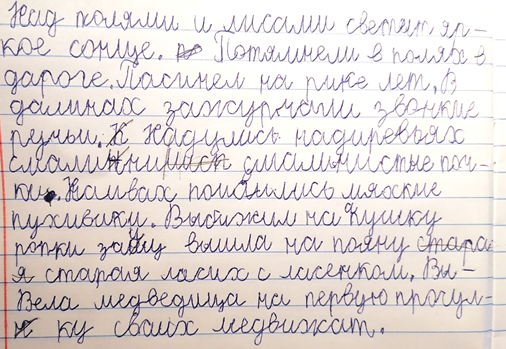 Над полями и лисами светит яр-
кое сонце. Потямнели в полях в
дароге. Пасинел на рике лет. В
далинах зажурчали звонкие
ручьи. Надулись надиревьях
смалинистые поч-
ки. Наивах появились мяхкие
пухивики. Выбижил на кушку
ропки заяц вышла на поляну стара
я старая ласиха с ласенком. Вы-
вела медведица на первую прогул-
ку сваих медвижат.